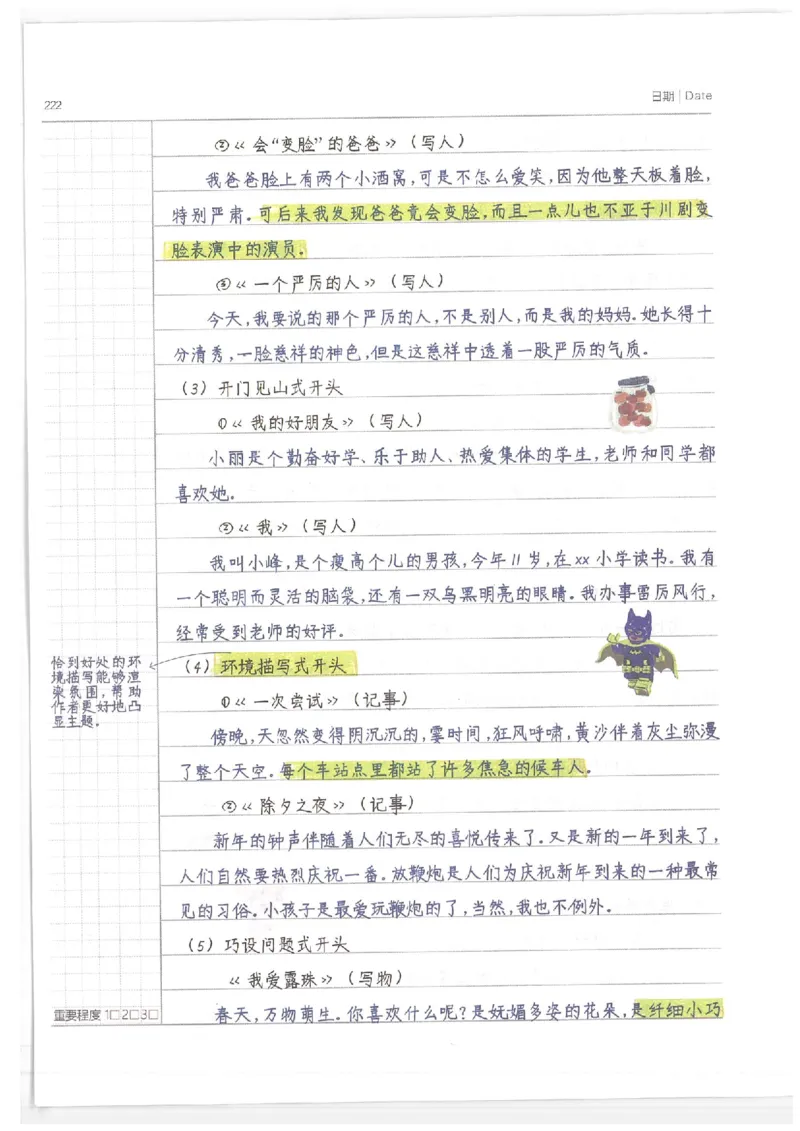 222
日期 | Date
②《会“变脸”的爸爸》（写人）
我爸爸脸上有两个小酒窝，可是不怎么爱笑，因为他整天板着脸，
特别严肃。可后来我发现爸爸竟会变脸，而且一点儿也不亚于川剧变
脸表演中的演员。
③《一个严厉的人》（写人）
今天，我要说的那个严厉的人，不是别人，而是我的妈妈。她长得十
分清秀，一脸慈祥的神色，但是这慈祥中透着一股严厉的气质。
（3）开门见山式开头
①《我的好朋友》（写人）
小丽是个勤奋好学、乐于助人、热爱集体的学生，老师和同学都
喜欢她。
②《我》（写人）
我叫小峰，是个瘦高个儿的男孩，今年11岁，在xx小学读书。我有
一个聪明而灵活的脑袋，还有一双乌黑明亮的眼睛。我办事雷厉风行，
经常受到老师的好评。
恰到好处的环
境描写能够渲
染氛围，帮助
作者更好地凸
显主题。
（4）环境描写式开头
①《一次尝试》（记事）
傍晚，天忽然变得阴沉沉的，霎时间，狂风呼啸，黄沙伴着灰尘弥漫
了整个天空。每个车站点里都站了许多焦急的候车人。
②《除夕之夜》（记事）
新年的钟声伴随着人们无尽的喜悦传来了。又是新的一年到来了，
人们自然要热烈庆祝一番。放鞭炮是人们为庆祝新年到来的一种最常
见的习俗。小孩子是最爱玩鞭炮的了，当然，我也不例外。
（5）巧设问题式开头
《我爱露珠》（写物）
春天，万物萌生。你喜欢什么呢？是妩媚多姿的花朵，是纤细小巧
重要程度 1□2□3□